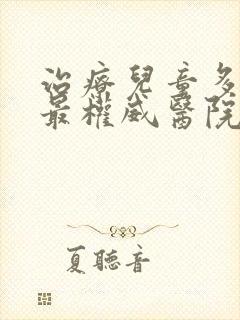 治療兒童多
最權威醫院
夏聽音